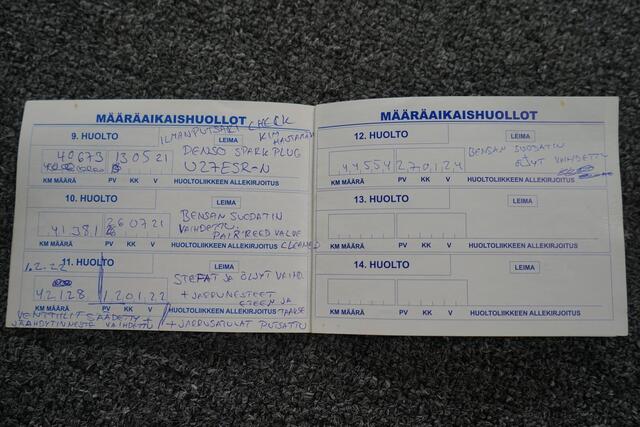 MÄÄRÄAIKAISHUOLLOT
ILMANPUTSARI CHECK
9. HUOLTO
LEIMA
KIM
DENSO SPARK PLUG
40673 13 05 21
U27ESR-N
KM MÄÄRÄ PV KK V HUOLTOLIIKKEEN ALLEKIRJOITUS
10. HUOLTO
LEIMA
BENSAN SUODATIN
26 07 21
VAIHDETTU,
41381
PAIR REED VALVE
CLEANED
KM MÄÄRÄ PV KK V HUOLTOLIIKKEEN ALLEKIRJOITUS
1.2.22
11. HUOLTO
LEIMA
STEFAT JA ÖLJYT VAIHD.
42128 12 01 22
+ JARRUNESTEET
ETEEN JA
TAAKSE
KM MÄÄRÄ PV KK V HUOLTOLIIKKEEN ALLEKIRJOITUS
VENTTIILIT SÄÄDETTY +
JÄÄHDYTINNESTE VAIHDETTU
+ JARRUSATULAT PUTSATTU
MÄÄRÄAIKAISHUOLLOT
12. HUOLTO
LEIMA
BENSAN SUODATIN
+
ÖLJYT VAIHDETTU
44554 27 01 24
KM MÄÄRÄ PV KK V HUOLTOLIIKKEEN ALLEKIRJOITUS
13. HUOLTO
LEIMA
KM MÄÄRÄ PV KK V HUOLTOLIIKKEEN ALLEKIRJOITUS
14. HUOLTO
LEIMA
KM MÄÄRÄ PV KK V HUOLTOLIIKKEEN ALLEKIRJOITUS